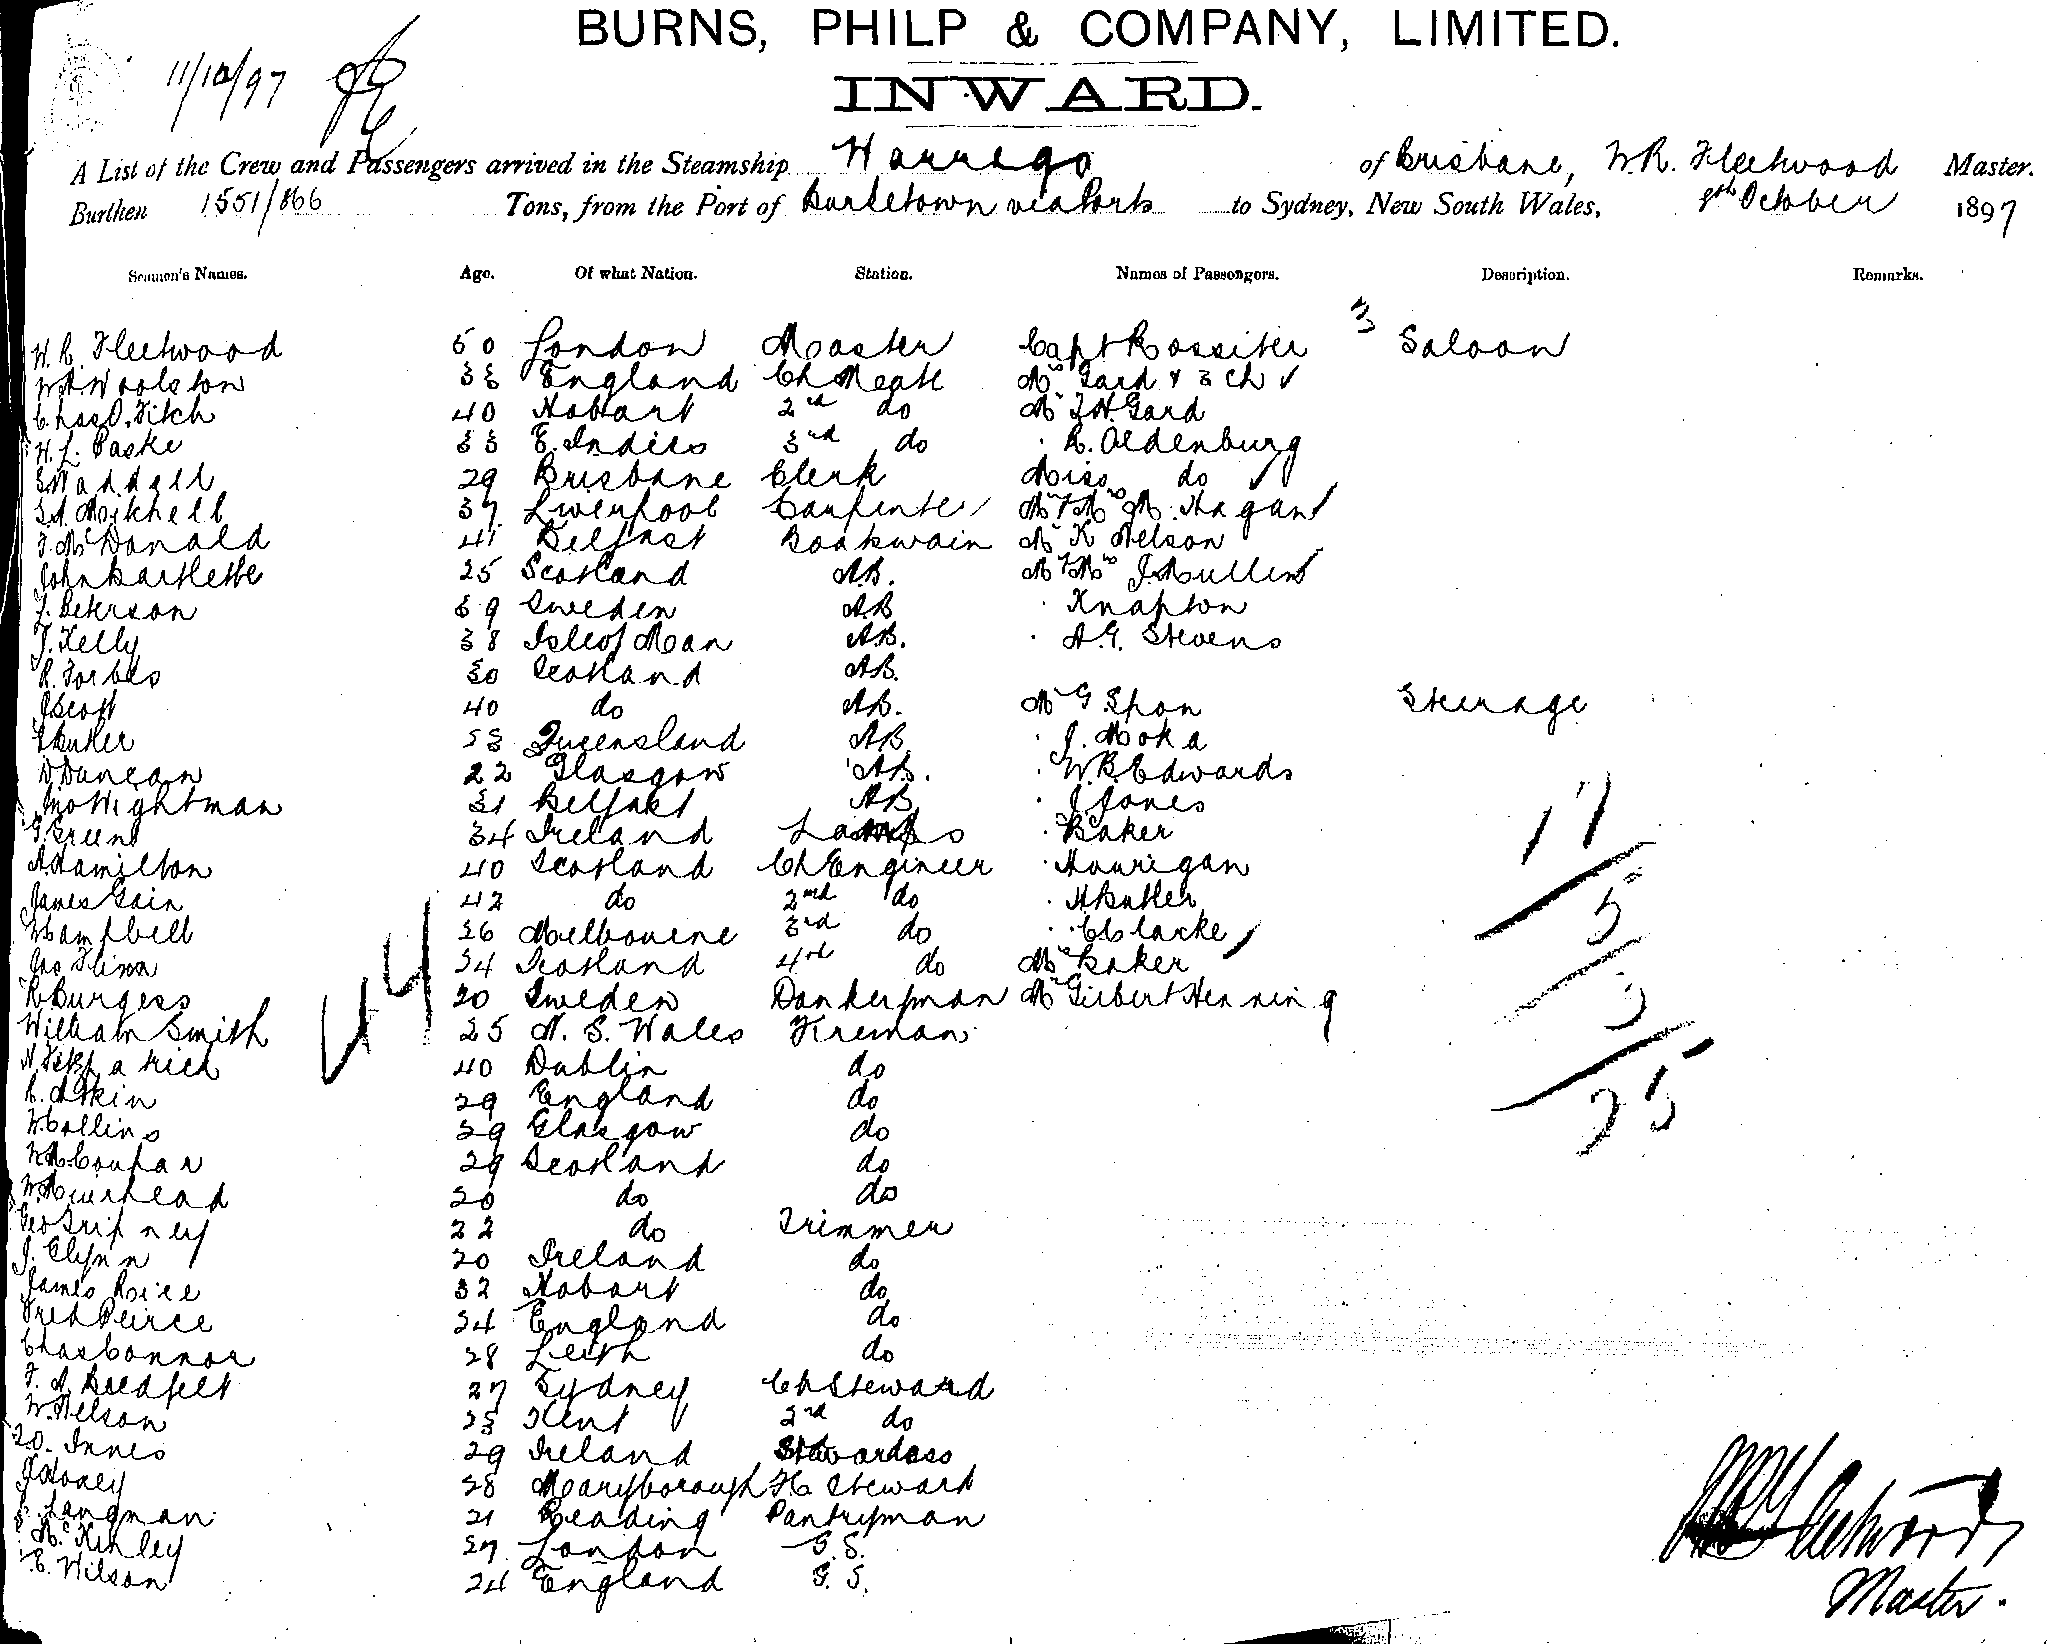 BURNS, PHILP & COMPANY, LIMITED.
INWARD.
11/10/97
A List of the Crew and Passengers arrived in the Steamship Warrego of Brisbane, W.R. Fleetwood Master.
Burthen 1551/866 Tons, from the Port of Burketown via Ports to Sydney, New South Wales, 9th October 1897
Seamen's Names. Age. Of what Nation. Station. Names of Passengers. Description. Remarks.
W. R. Fleetwood 50 London Master Capt Rossiter 3 Saloon
W.A. Woolston 33 England Ch Mate Mrs Gard & 3 Ch
Chas O. Fitch 40 Hobart 2nd do Mr F.H. Gard
H. L. Paske 33 E. Indies 3rd do " R. Oldenburg
Waddell 29 Brisbane Clerk Miss do
Mitchell 37 Liverpool Carpenter Mr & Mrs M. Hagan
F. McDonald 41 Belfast Boatswain Mr K Nelson
John Bartlette 25 Scotland A.B. Mr & Mrs J. Mullins
L. Peterson 39 Sweden AB " Knapton
J. Kelly 38 Isle of Man AB. " A.G. Stevens
R. Forbes 30 Scotland AB.
J Scott 40 do AB. Mr G Spon Steerage
Butler 33 Queensland AB " J. Moka
D. Duncan 22 Glasgow AB. " W.B. Edwards
Jno Wightman 31 Belfast AB " J Jones
Green 34 Ireland Lamps " Baker
A Hamilton 40 Scotland Ch Engineer " Hourigan
James Gain 42 do 2nd do " H Butler
W Campbell 26 Melbourne 3rd do " C Clarke
Jno Flinn 34 Scotland 4th do Mrs Baker
R Burgess 20 Sweden Donkeyman Mr Gilbert Henning
William Smith 25 N. S. Wales Fireman
N. Fitzpatrick 40 Dublin do
R. Atkin 29 England do
W. Collins 39 Glasgow do
W Coupar 29 Scotland do
W. Muirhead 30 do do
Geo 22 do Trimmer
J. Clynn 20 Ireland do
James Rice 32 Hobart do
Fred Peirce 34 England do
Chas Connor 28 Leith do
F. A Bredfelt 27 Sydney Ch Steward
W. Nelson 23 Kent 2nd do
Innes 29 Ireland Stewardess
28 Maryborough F.C. Steward
Langman 21 Reading Pantryman
McKinley 27 London G.S.
E. Wilson 24 England G.S.
44
17
5
3
25
W R Fleetwood
Master.